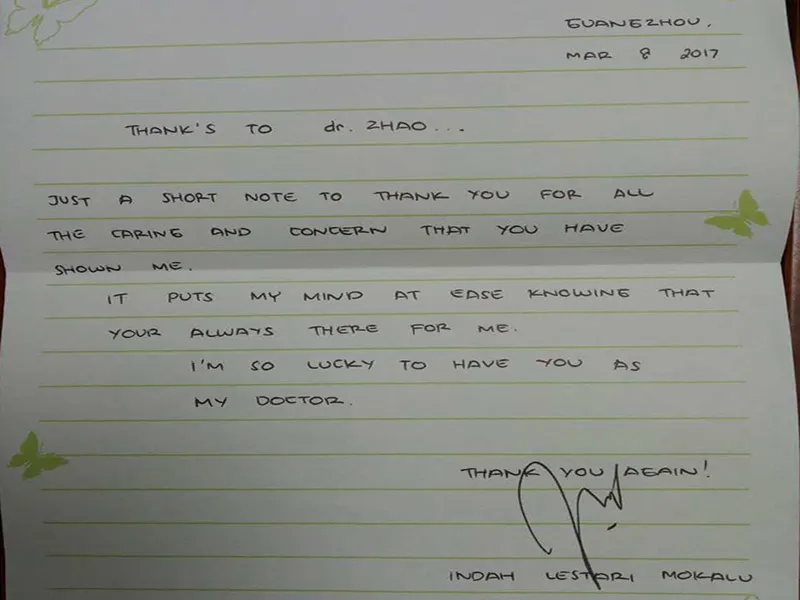 GUANGZHOU.
MAR 8 2017
THANK'S TO dr. ZHAO...
JUST A SHORT NOTE TO THANK YOU FOR ALL
THE CARING AND CONCERN THAT YOU HAVE
SHOWN ME.
IT PUTS MY MIND AT EASE KNOWING THAT
YOUR ALWAYS THERE FOR ME.
I'M SO LUCKY TO HAVE YOU AS
MY DOCTOR.
THANK YOU AGAIN!
INDAH LESTARI MOKALU